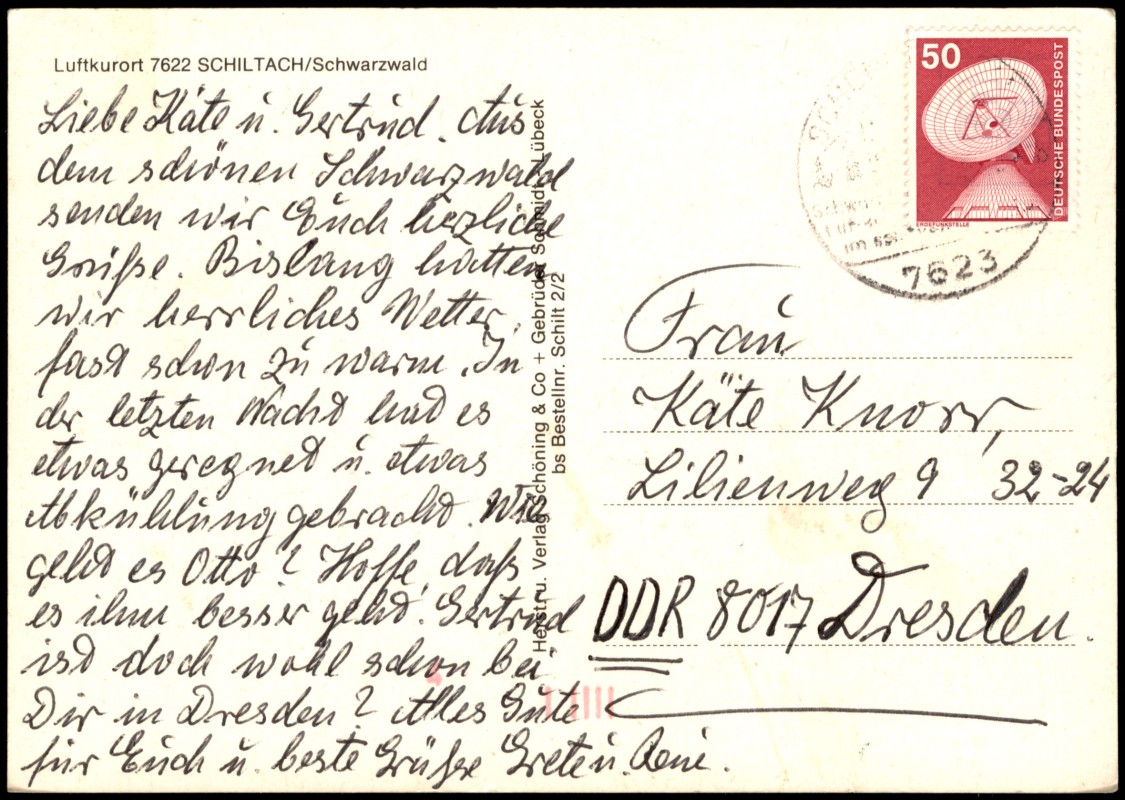 Luftkurort 7622 SCHILTACH/Schwarzwald
Liebe Käte u. Gertrud. Aus
dem schönen Schwarzwald
senden wir Euch herzliche
Grüße. Bislang hatten
wir herrliches Wetter,
fast schon zu warm. In
der letzten Nacht hat es
etwas geregnet u. etwas
Abkühlung gebracht. Wie
geht es Otto? Hoffe, daß
es ihm besser geht. Gertrud
ist doch wohl schon bei
Dir in Dresden? Alles Gute
für Euch u. beste Grüße Grete u.
Herst. u. Verlag Schöning & Co + Gebrüder Schmidt, Lübeck
bs Bestellnr. Schilt 2/2
50
DEUTSCHE BUNDESPOST
ERDEFUNKSTELLE
7623
Frau
Käte Knorr,
Lilienweg 9 32-24
DDR 8017 Dresden.